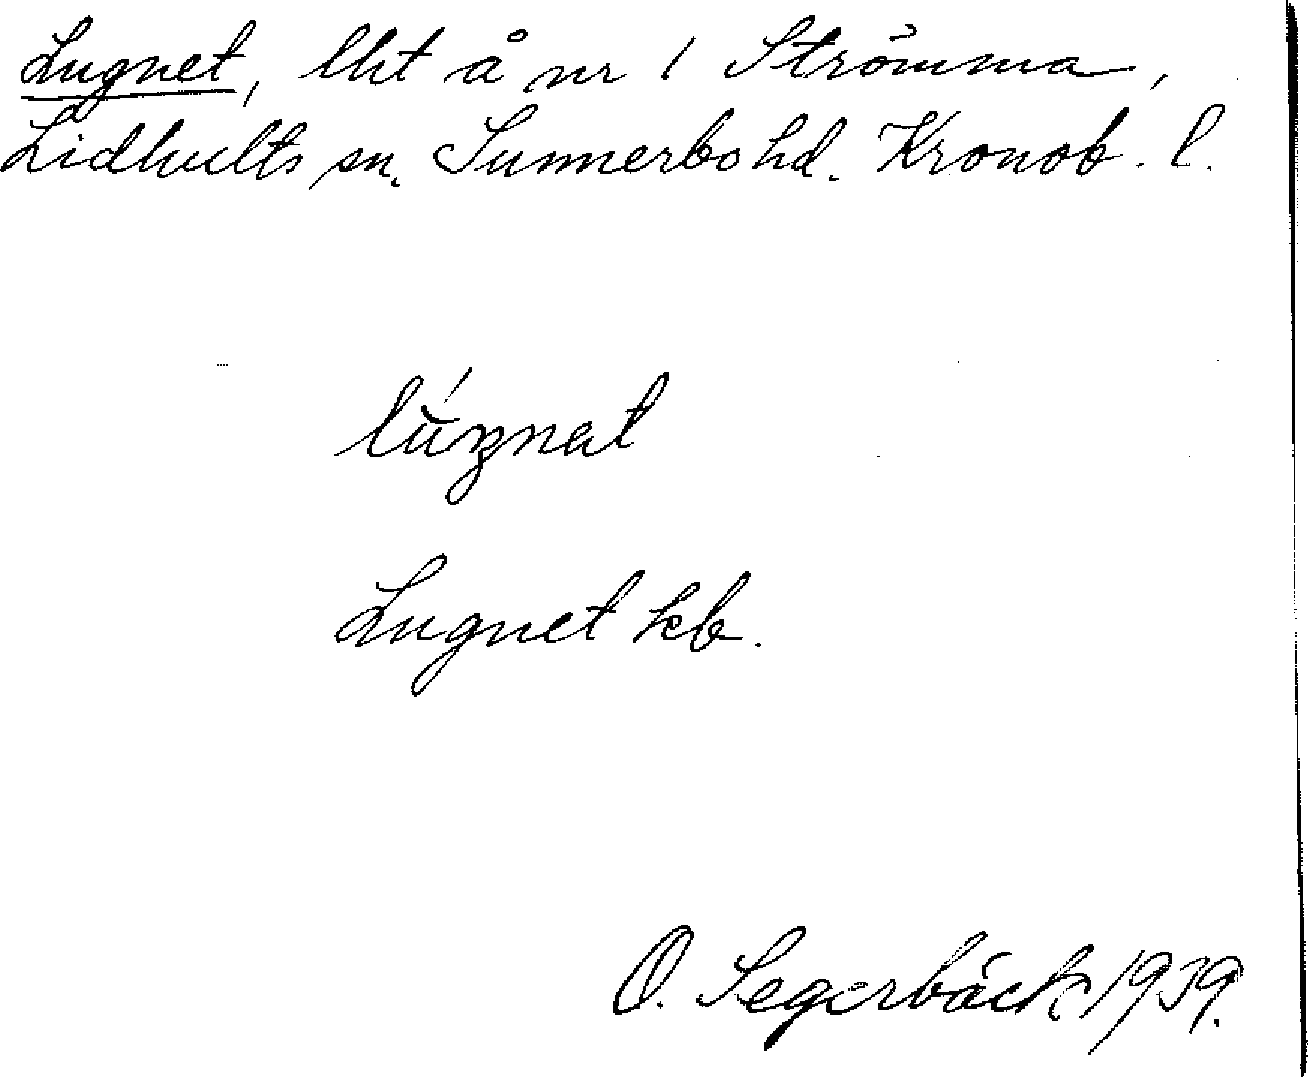 Lugnet, lht å nr 1 Strömma,
Lidhults sn. Sunnerbo hd. Kronob. l.
lúŋnat
Lugnet kb.
O. Segerbäck 1939.